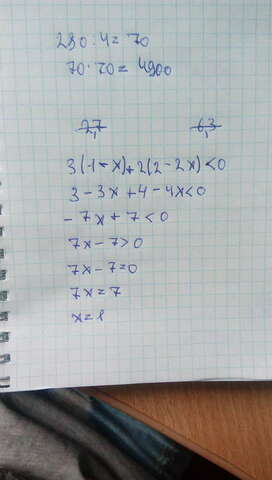 280:4=70
70·70=4900
27 63
3(1-x)+2(2-2x)<0
3-3x+4-4x<0
-7x+7<0
7x-7>0
7x-7=0
7x=7
x=1